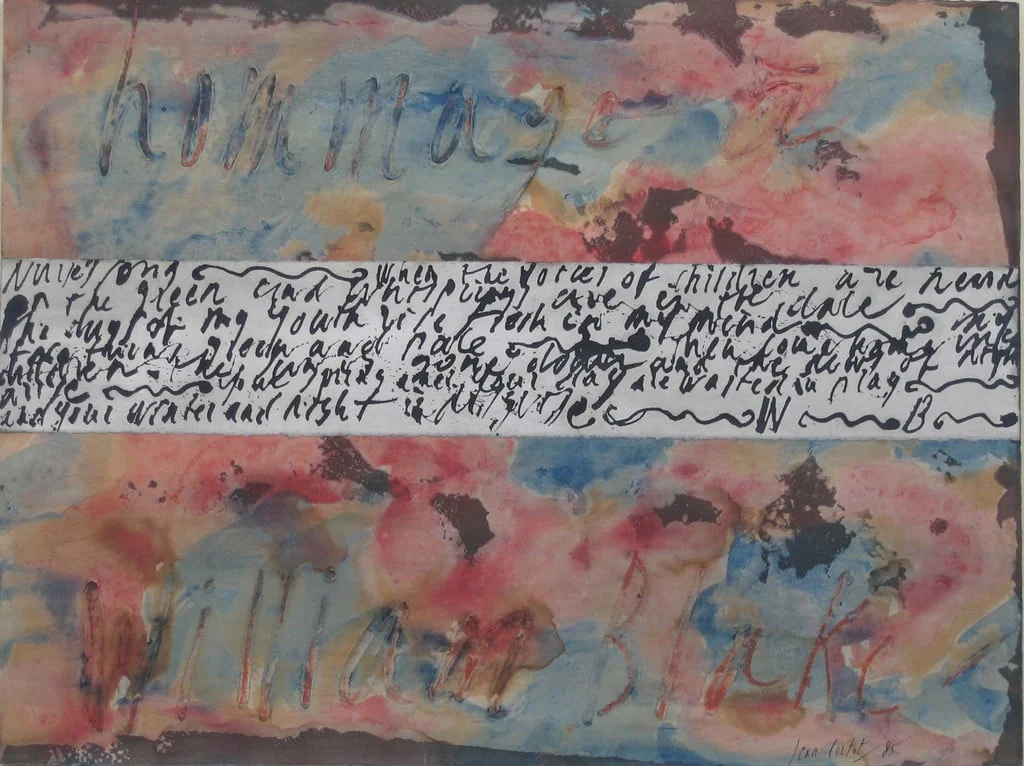 hommage à
Nurse's Song When the voices of children are heard
on the green and whisperings are in the dale
The days of my youth rise fresh in my mind my
face turns green and pale Then come home my
children the sun is gone down and the dews of night
arise your spring and your day are wasted in play
and your winter and night in disguise W B
William Blake
Jean Cortot 85